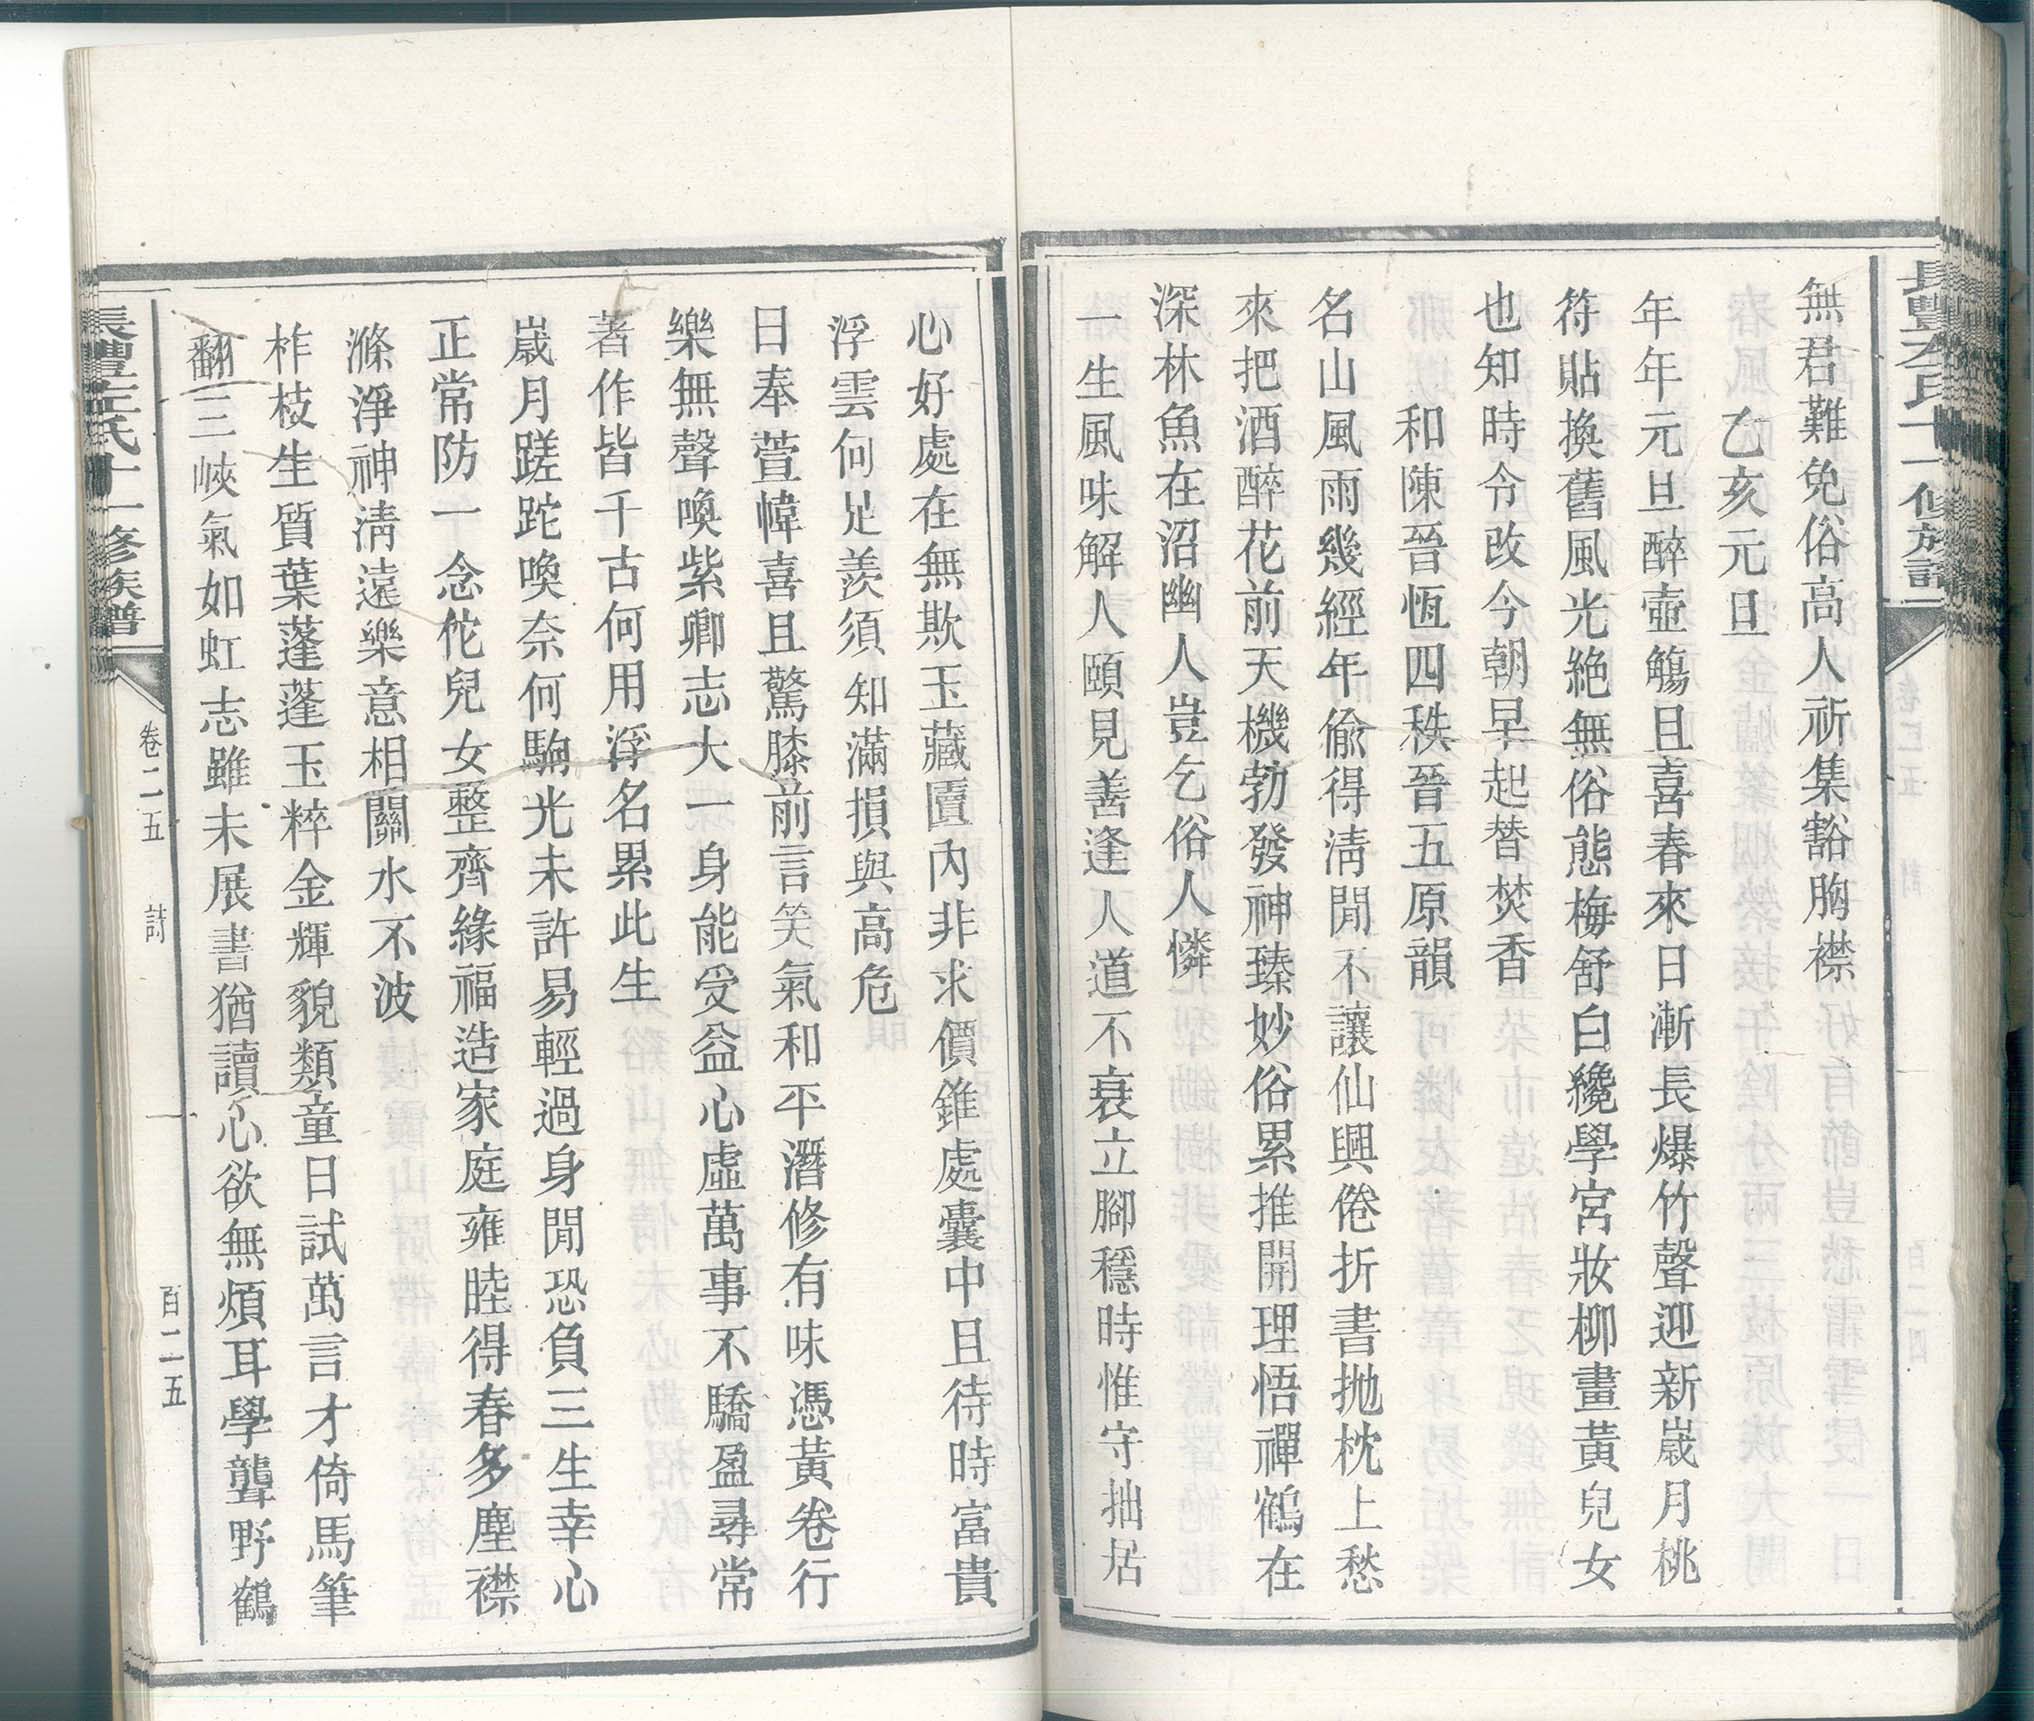 無君難免俗高人祈集豁胸襟
乙亥元旦
年年元旦醉壺觴且喜春來日漸長爆竹聲迎新歲月桃
符貼換舊風光絕無俗態梅舒白纔學宮妝柳畫黃兒女
也知時令改今朝早起替焚香
和陳晉恆四秩晉五原韻
名山風雨幾經年偷得淸閒不讓仙興倦折書拋枕上愁
來把酒醉花前天機勃發神臻妙俗累推開理悟禪鶴在
深林魚在沼幽人豈乞俗人憐
一生風味解人頤見善逢人道不衰立腳穩時惟守拙居
心好處在無欺玉藏匵內非求價錐處囊中且待時富貴
浮雲何足羨須知滿損與高危
日奉萱幃喜且驚膝前言笑氣和平潛修有味憑黃卷行
樂無聲喚紫卿志大一身能受益心虛萬事不驕盈尋常
著作皆千古何用浮名累此生
歲月蹉跎喚奈何駒光未許易輕過身閒恐負三生幸心
正常防一念佗兒女整齊緣福造家庭雍睦得春多塵襟
滌淨神淸遠樂意相關水不波
柞枝生質葉蓬蓬玉粹金輝貌類童日試萬言才倚馬筆
翻三峽氣如虹志雖未展書猶讀心欲無煩耳學聾野鶴
長豐左氏十一修族譜
卷二五
詩
百二五